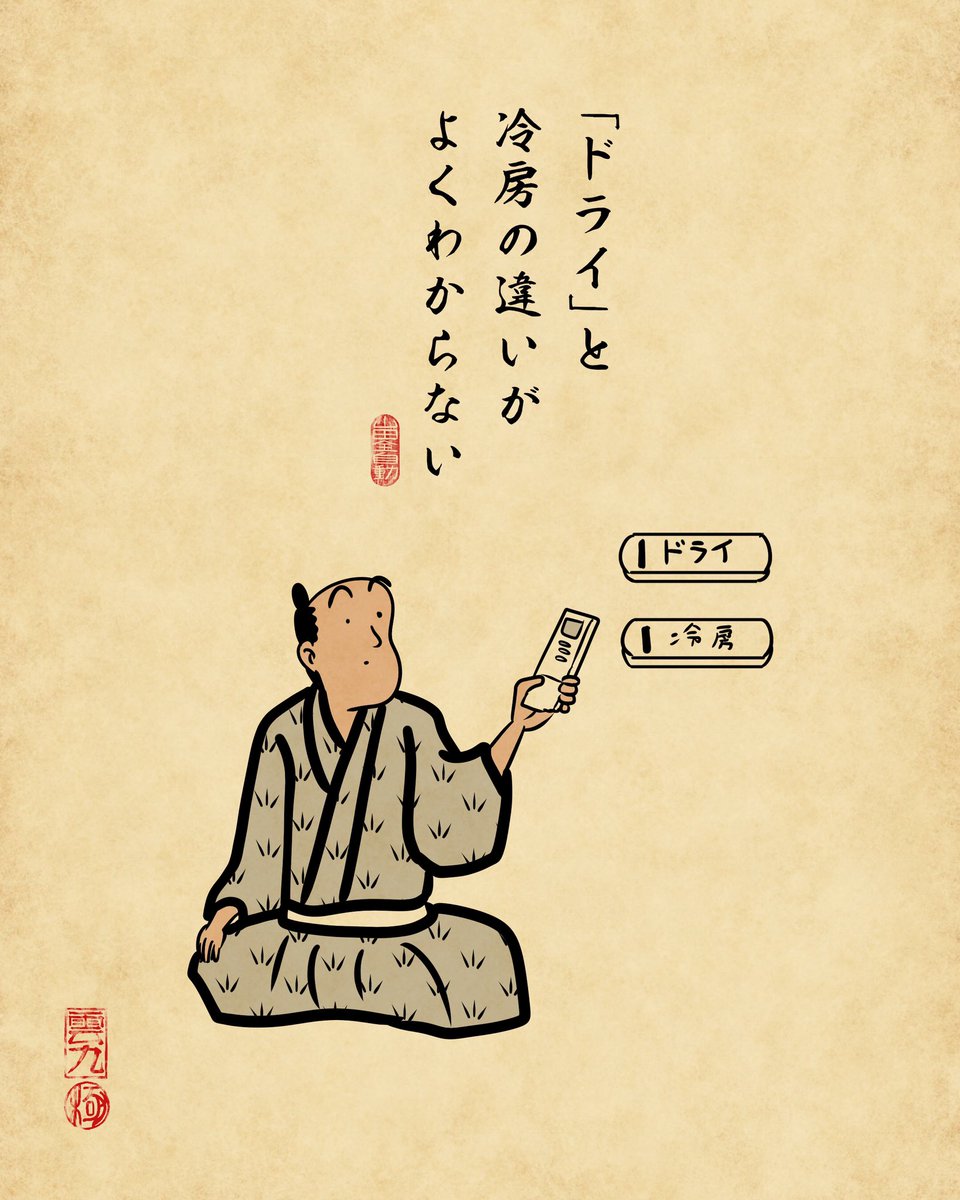 「ドライ」と
冷房の違いが
よくわからない
ドライ
冷房